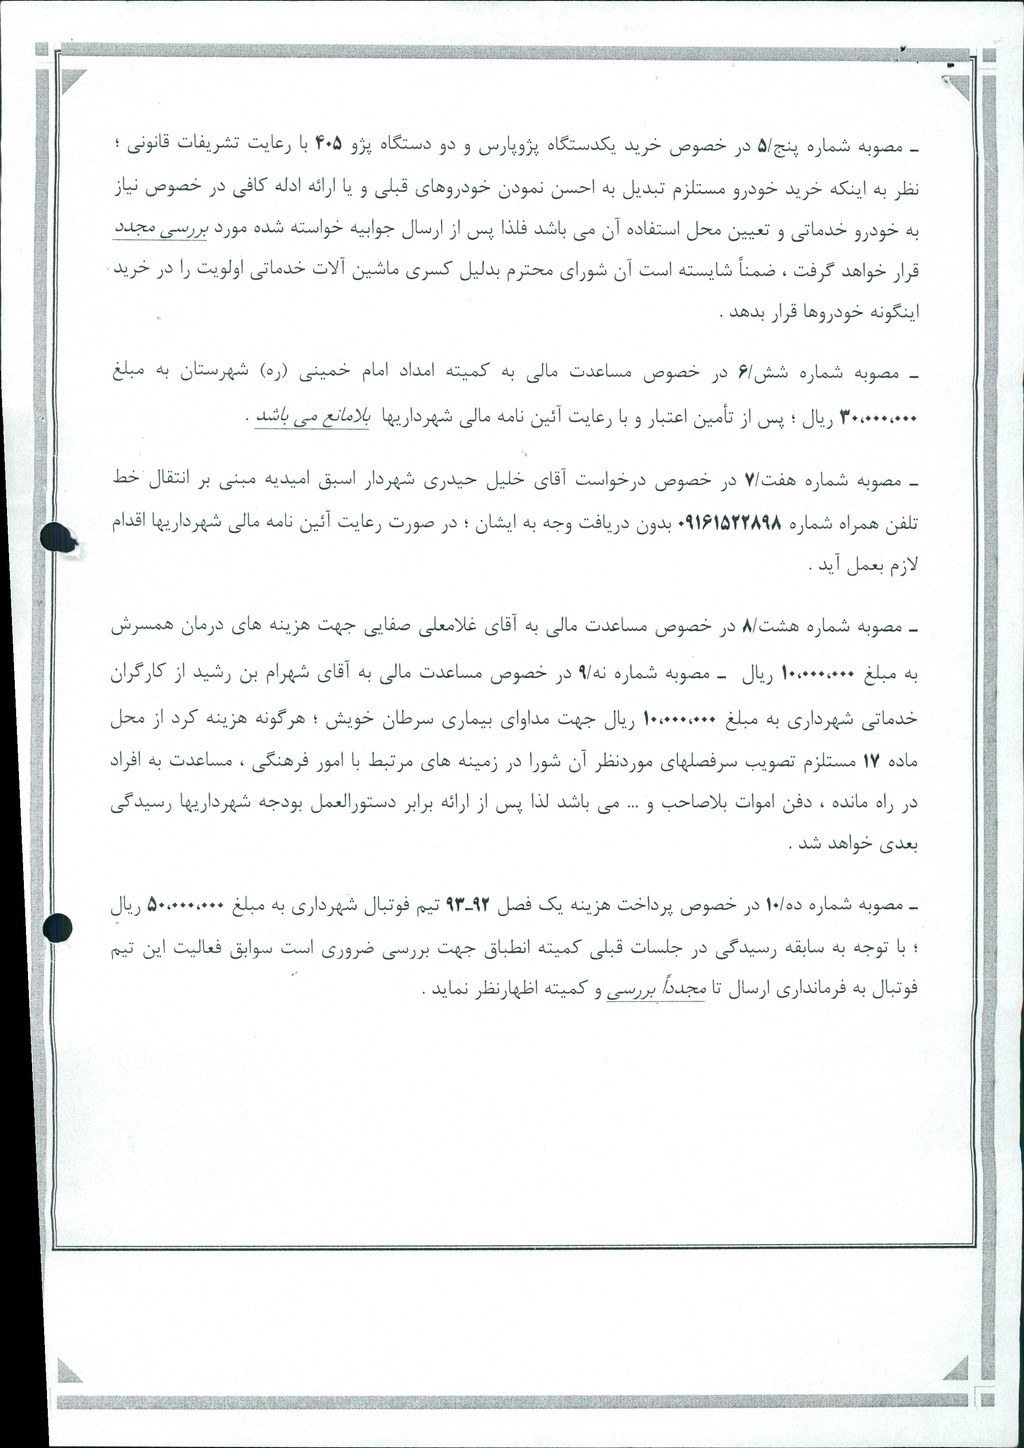 ـ مصوبه شماره پنج/۵ در خصوص خرید یکدستگاه پژوپارس و دو دستگاه پژو ۴۰۵ با رعایت تشریفات قانونی ؛
نظر به اینکه خرید خودرو مستلزم تبدیل به احسن نمودن خودروهای قبلی و یا ارائه ادله کافی در خصوص نیاز
به خودرو خدماتی و تعیین محل استفاده آن می باشد فلذا پس از ارسال جوابیه خواسته شده مورد بررسی مجدد
قرار خواهد گرفت ، ضمناً شایسته است آن شورای محترم بدلیل کسری ماشین آلات خدماتی اولویت را در خرید
اینگونه خودروها قرار بدهد .
ـ مصوبه شماره شش/۶ در خصوص مساعدت مالی به کمیته امداد امام خمینی (ره) شهرستان به مبلغ
۳۰،۰۰۰،۰۰۰ ریال ؛ پس از تأمین اعتبار و با رعایت آئین نامه مالی شهرداریها بلامانع می باشد .
ـ مصوبه شماره هفت/۷ در خصوص درخواست آقای خلیل حیدری شهردار اسبق امیدیه مبنی بر انتقال خط
تلفن همراه شماره ۰۹۱۶۱۵۲۲۸۹۸ بدون دریافت وجه به ایشان ؛ در صورت رعایت آئین نامه مالی شهرداریها اقدام
لازم بعمل آید .
ـ مصوبه شماره هشت/۸ در خصوص مساعدت مالی به آقای غلامعلی صفایی جهت هزینه های درمان همسرش
به مبلغ ۱۰،۰۰۰،۰۰۰ ریال ـ مصوبه شماره نه/۹ در خصوص مساعدت مالی به آقای شهرام بن رشید از کارگران
خدماتی شهرداری به مبلغ ۱۰،۰۰۰،۰۰۰ ریال جهت مداوای بیماری سرطان خویش ؛ هرگونه هزینه کرد از محل
ماده ۱۷ مستلزم تصویب سرفصلهای موردنظر آن شورا در زمینه های مرتبط با امور فرهنگی ، مساعدت به افراد
در راه مانده ، دفن اموات بلاصاحب و ... می باشد لذا پس از ارائه برابر دستورالعمل بودجه شهرداریها رسیدگی
بعدی خواهد شد .
ـ مصوبه شماره ده/۱۰ در خصوص پرداخت هزینه یک فصل ۹۲ـ۹۳ تیم فوتبال شهرداری به مبلغ ۵۰،۰۰۰،۰۰۰ ریال
؛ با توجه به سابقه رسیدگی در جلسات قبلی کمیته انطباق جهت بررسی ضروری است سوابق فعالیت این تیم
فوتبال به فرمانداری ارسال تا مجدداً بررسی و کمیته اظهارنظر نماید .